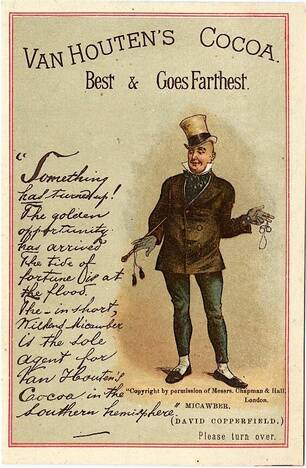 VAN HOUTEN'S COCOA.
Best & Goes Farthest.
"Something
has turned up!
The golden
opportunity
has arrived
The tide of
fortune is at
the flood
The - in short,
Wilkins Micawber
is the sole
agent for
Van Houten's
Cocoa in the
southern hemisphere."
"Copyright by permission of Messrs. Chapman & Hall,
London.
MICAWBER.
(DAVID COPPERFIELD.)
Please turn over.